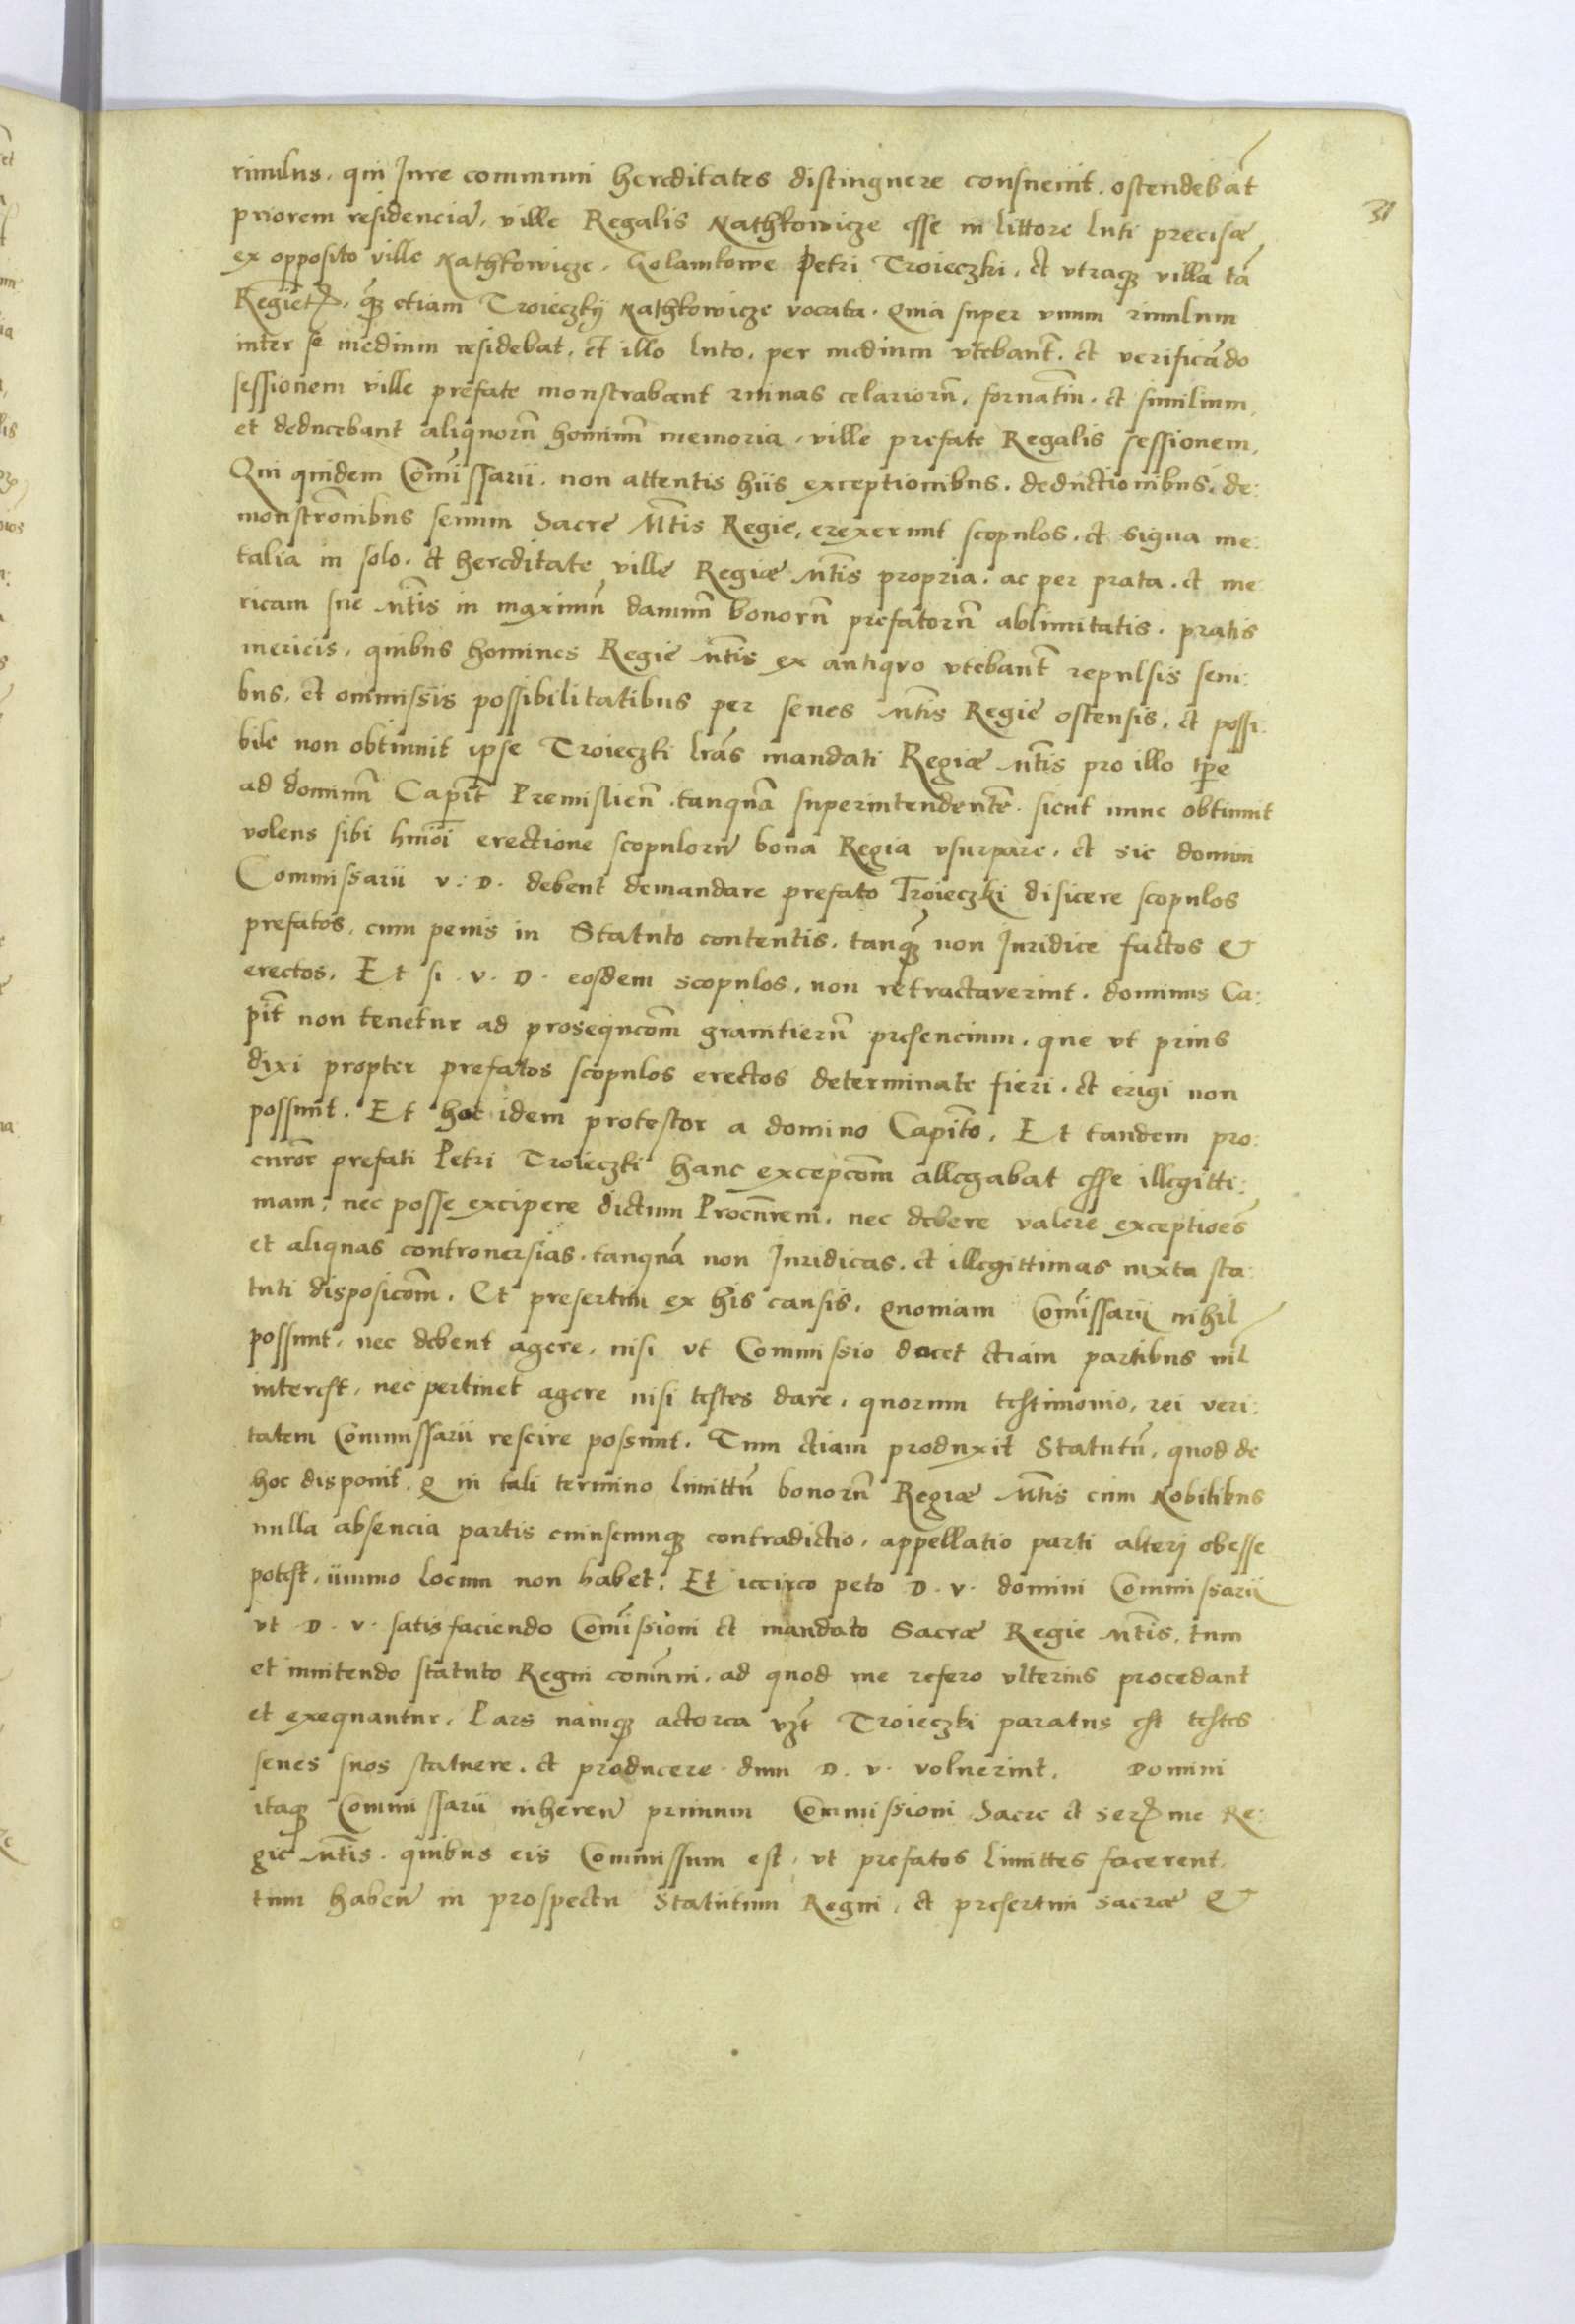 31
rivulus, qui Jure communi hereditates distinguere consuevit. ostendebāt
priorem residenciā, ville Regalis Nathkowicze esse in littore luti precisæ
ex opposito ville Nathkowicze, Golamkowe Petri Troieczki, et utraqꝫ villa tā
qꝫ etiam Troieczky Nathkowicze vocata. Quia super unum rivulum
inter se medium residebat, et illo luto, per medium vtebant̄. et verificādo
sessionem ville prefate monstrabant ruinas celariorū, fornatiū. et similium,
et deducebant aliquorū hominū memoria, ville prefate Regalis sessionem.
Qui quidem Com̄issarii, non attentis hiis exceptionibus, deductionibus, de:
monstrōnibus senum Sacre Mt̄is Regie, erexerunt scopulos, et signa me:
talia in solo, et hereditate ville Regiæ Mt̄is propria, ac per prata, et me
ricam sue Mt̄is in maximū damnū bonorū prefatorū ablimitatis, pratis
mericis, quibus homines Regie Mt̄is ex antiquo vtebant̄ repulsis seni:
bus, et ommissis possibilitatibus per senes Mt̄is Regie ostensis, et possi:
bile non obtinuit ipse Troieczki lr̄as mandati Regiæ Mt̄is pro illo tp̄re
ad dominū Capit̄ Premislien̄ tanquā superintendentē, sicut nunc obtinuit
volens sibi hmōi erectione scopulorū bona Regia vsurpare, et sic domini
Commissarii v: D. debent demandare prefato Troieczki disicere scopulos
prefatos, cum penis in Statuto contentis, tanqꝫ non Juridice factos &
erectos, Et si v. D. eosdem scopulos, non retractaverint, dominus Ca:
pit̄ non tenetur ad prosequcōm granitierū presencium, que vt prius
dixi propter prefatos scopulos erectos determinate fieri, et erigi non
possunt. Et hoc idem protestor a domino Capit̄o, Et tandem pro:
curōr prefati Petri Troieczki hanc excepcōm allegabat esse illegitti:
mam, nec posse excipere dictum Procur̄rem, nec debere valere exceptioēs
et aliquas controversias, tanquā non Juridicas, et illegittimas iuxta sta
tuti disposicōm, Et presertim ex his causis, quoniam Com̄issarij nihil
possunt, nec debent agere, nisi vt Commissio docet etiam partibus nil̄
interest, nec pertinet agere nisi testes dare, quorum testimonio, rei veri:
tatem Commissarii rescire possunt. Tum etiam produxit Statutū, quod de
hoc disponit, q̄ in tali termino limittū bonorū Regiæ Mt̄is cum Nobilibus
nulla absencia partis cuiuscunqꝫ contradictio, appellatio parti alteri obesse
potest, ummo locum non habet. Et iccirco peto D. v. domini Commissarii
vt D. v. satisfaciendo Com̄issioni et mandato Sacræ Regie Mt̄is, tum
et innitendo statuto Regni com̄uni, ad quod me refero vlterius procedant
et exequantur. Pars namqꝫ actorea vꝫt Troieczki paratus est testes
senes suos statuere, et producere dum D. v. voluerint. Domini
itaqꝫ Commissarii inheren̄ primum Commissioni Sacre et Ser me Re:
gie Mt̄is, quibus eis Commissum est, vt prefatos limittes facerent
tum haben̄ in prospectu Statutum Regni, et presertim Sacræ &